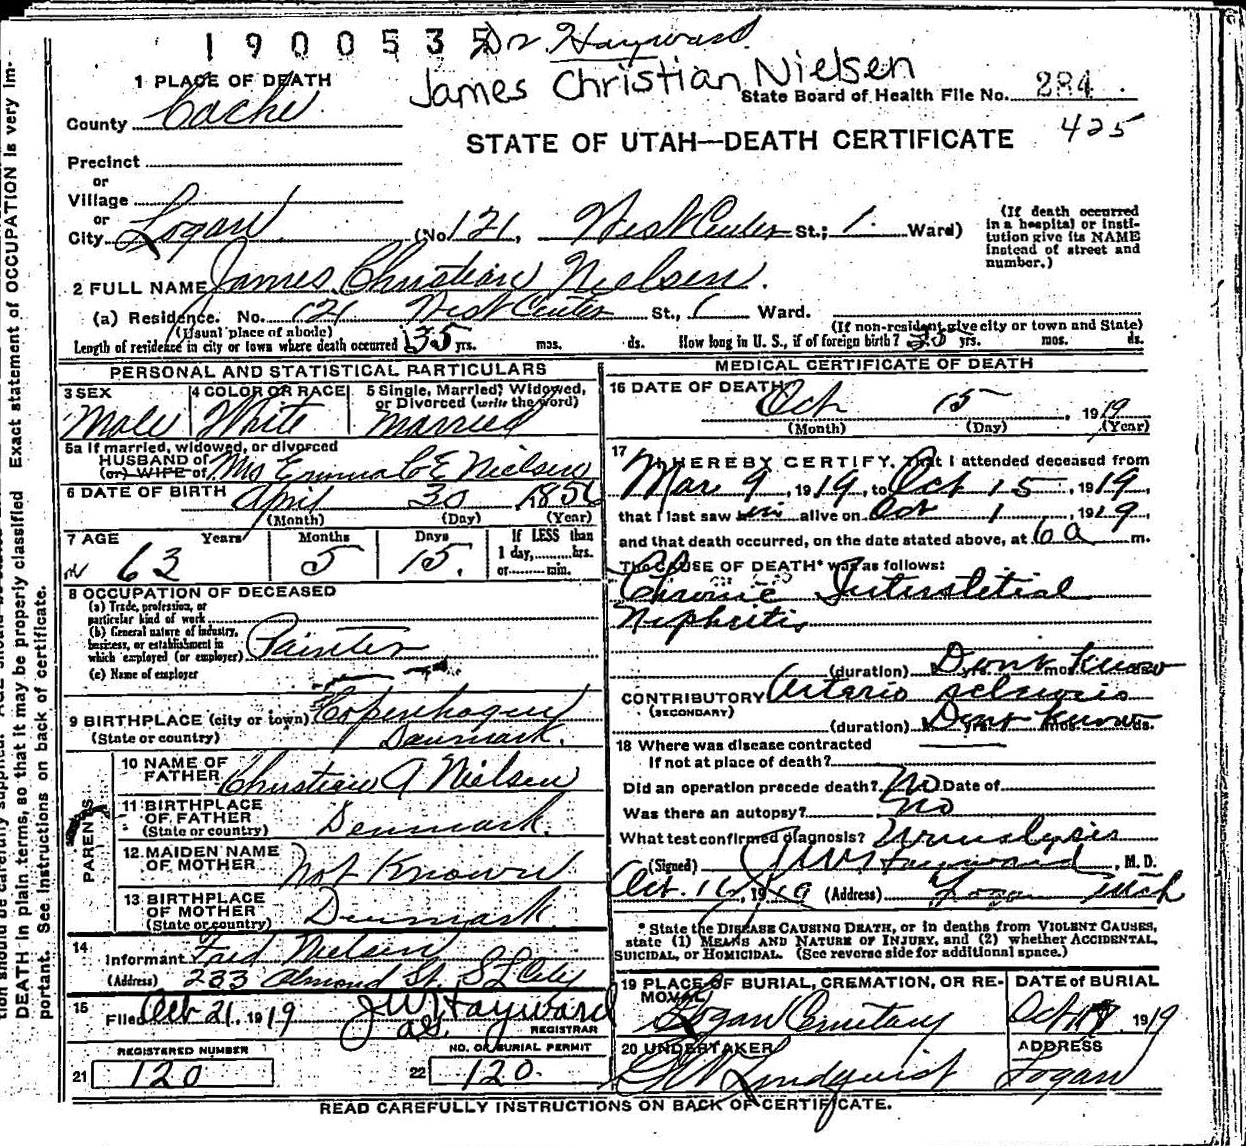 1900535 Dr. Hayward
James Christian Nielsen
1 PLACE OF DEATH
State Board of Health File No. 284
425
County Cache
STATE OF UTAH—DEATH CERTIFICATE
Precinct
or
Village
or
City Logan (No. 121, West Center St.; 1. Ward)
(If death occurred
in a hospital or insti-
tution give its NAME
instead of street and
number.)
2 FULL NAME James Christian Nielsen.
(a) Residence. No. 121 West Center St., 1 Ward.
(Usual place of abode) (If non-resident give city or town and State)
Length of residence in city or town where death occurred 35 yrs. mos. ds. How long in U. S., if of foreign birth? 35 yrs. mos. ds.
PERSONAL AND STATISTICAL PARTICULARS
3 SEX 4 COLOR OR RACE 5 Single, Married, Widowed,
or Divorced (write the word)
Male White Married
5a If married, widowed, or divorced
HUSBAND of
(or) WIFE of Mrs Emma C E Nielsen
6 DATE OF BIRTH April 30 1856
(Month) (Day) (Year)
7 AGE Years Months Days If LESS than
1 day, hrs.
or min.
63 5 15.
8 OCCUPATION OF DECEASED
(a) Trade, profession, or
particular kind of work
(b) General nature of industry,
business, or establishment in
which employed (or employer) Painter
(c) Name of employer
9 BIRTHPLACE (city or town) Copenhagen
(State or country) Denmark.
PARENTS
10 NAME OF
FATHER Christian A Nielsen
11 BIRTHPLACE
OF FATHER
(State or country) Denmark.
12 MAIDEN NAME
OF MOTHER Not Known
13 BIRTHPLACE
OF MOTHER
(State or country) Denmark
14
Informant Fred Nielsen
(Address) 233 Almond St. S L City
15
Filed Oct 21, 1919 J W Hayward
REGISTRAR
REGISTERED NUMBER NO. OF BURIAL PERMIT
21 120 22 120.
MEDICAL CERTIFICATE OF DEATH
16 DATE OF DEATH
Oct 15, 1919
(Month) (Day) (Year)
17 I HEREBY CERTIFY, That I attended deceased from
Mar 9, 1919, to Oct 15, 1919,
that I last saw him alive on Oct 1, 1919
and that death occurred, on the date stated above, at 6 a m.
The CAUSE OF DEATH* was as follows:
Chronic Interstetial
Nephritis
(duration) Dont Know yrs. mos.
CONTRIBUTORY Arterio sclerosis
(SECONDARY)
(duration) Dont Know yrs. mos. ds.
18 Where was disease contracted
If not at place of death?
Did an operation precede death? No Date of
Was there an autopsy? no
What test confirmed diagnosis? Urinalysis
(Signed) J W Hayward, M. D.
Oct. 16, 1919 (Address) Logan Utah
* State the DISEASE CAUSING DEATH, or in deaths from VIOLENT CAUSES,
state (1) MEANS AND NATURE OF INJURY, and (2) whether ACCIDENTAL,
SUICIDAL, or HOMICIDAL. (See reverse side for additional space.)
19 PLACE OF BURIAL, CREMATION, OR RE-
MOVAL DATE OF BURIAL
Logan Cemetary Oct 1919
20 UNDERTAKER ADDRESS
Lindquist Logan
READ CAREFULLY INSTRUCTIONS ON BACK OF CERTIFICATE.
DEATH in plain terms, so that it may be properly classified. Exact statement of OCCUPATION is very im-
portant. See Instructions on back of certificate.